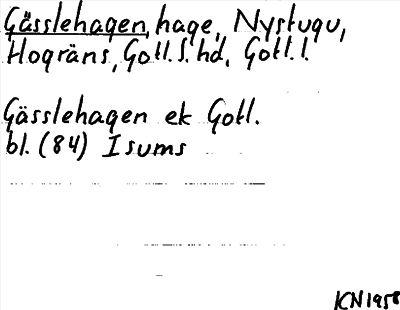 Gässlehagen, hage, Nystugu,
Hogräns, Gotl. S. hd, Gotl. l.
Gässlehagen ek Gotl.
bl. (84) Isums
KN 1958